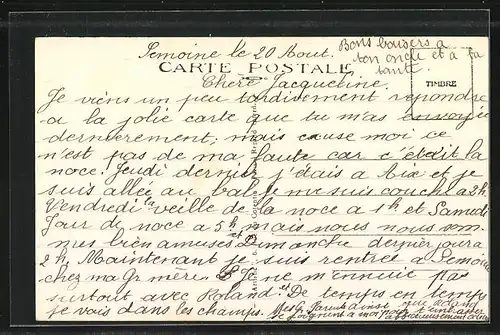 Semoine le 20 Aout.
Bons baisers a
ton oncle et à ta
tante.
CARTE POSTALE
TIMBRE
Chere Jacqueline.
Je viens un peu tardivement repondre
a la jolie carte que tu m'as envoyée
dernierement, mais cause moi ce
n'est pas de ma faute car c'était la
noce. Jeudi dernier j'étais a et je
suis allée au bal je me suis couchée a 2h.
Vendredi la veille de la noce a 1h et Samedi
Jour de noce a 5h mais nous nous som-
mes bien amusés. et Dimanche dernier jour a
2h. Maintenant je suis rentrée a Semoine
chez ma Gr mère. Je ne m'ennuie pas
surtout avec Roland. et De temps en temps
je vais dans les champs. Mes Gr Parents ainsi que
se joignent a moi pour t'embrasser
affectueusement